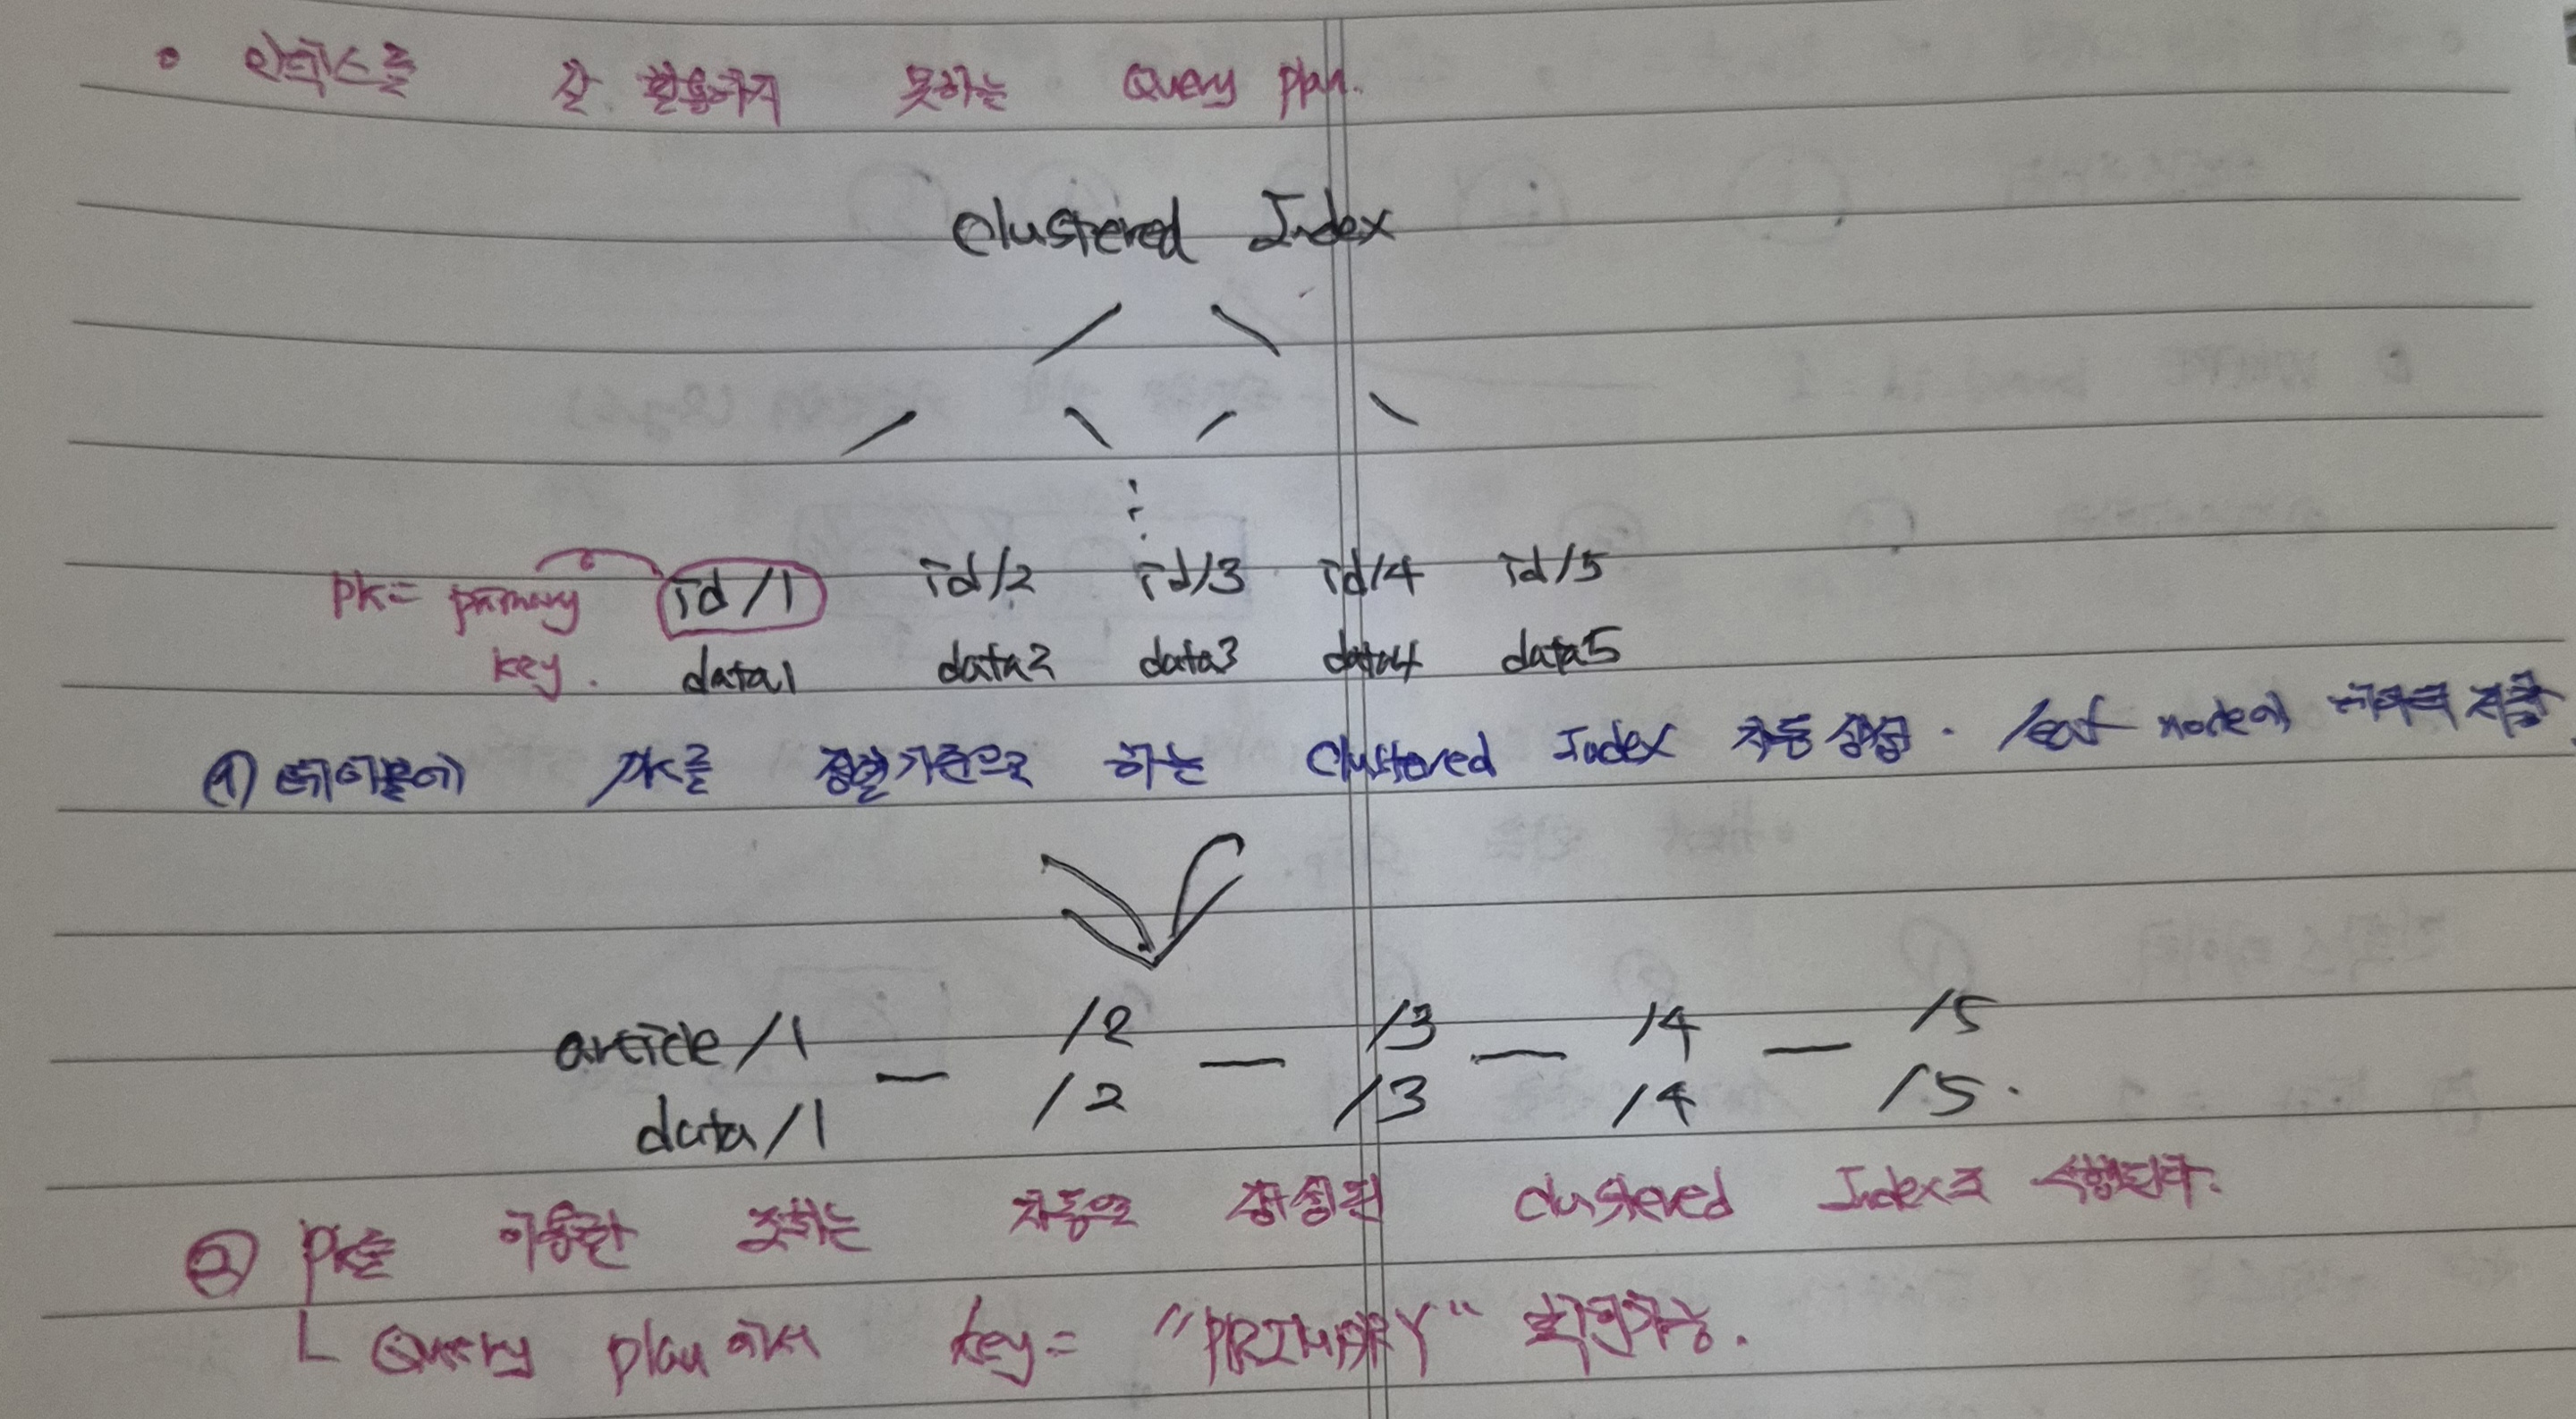 • 인덱스를 잘 활용하지 못하는 Query plan.
Clustered Index
id/1 id/2 id/3 id/4 id/5
PK= primary
key.
data1 data2 data3 data4 data5
① 테이블에 PK를 정렬기준으로 하는 Clustered Index 자동 생성. leaf node에 데이터 저장
article/1 — /2 — /3 — /4 — /5
data/1 /2 /3 /4 /5.
② PK를 이용한 조회는 자동으로 생성된 clustered Index로 수행된다.
ㄴ Query plan에서 key= "PRIMARY" 확인가능.